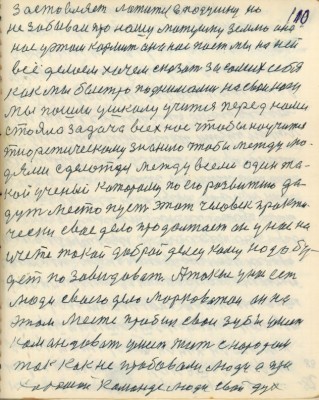 110
заставляет платить единщину но
не забывай про нашу матушку землю она
нас учит кормит она нас поит мы на ней
всё делаем хочем сказать за самих себя
как мы быстро поднимали на свои ноги
мы пошли у школу учится перед нами
стояла задача всех нас чтобы научится
теоретическому знанию чтобы между лю-
дями сделотца между всеми один та-
кой ученый которому по его развитию да-
дут место пуст этот человек практи-
чески свае дело продолжает он у нас на
щете такой доброй делу кому надо бу-
дет по завидоват. А такие уже ест
люди своего дела он на
этом месте пробил свои зубы умеет
командоват умеет жит с народом
так как не пробовали люди а эти
командa люди свой дух